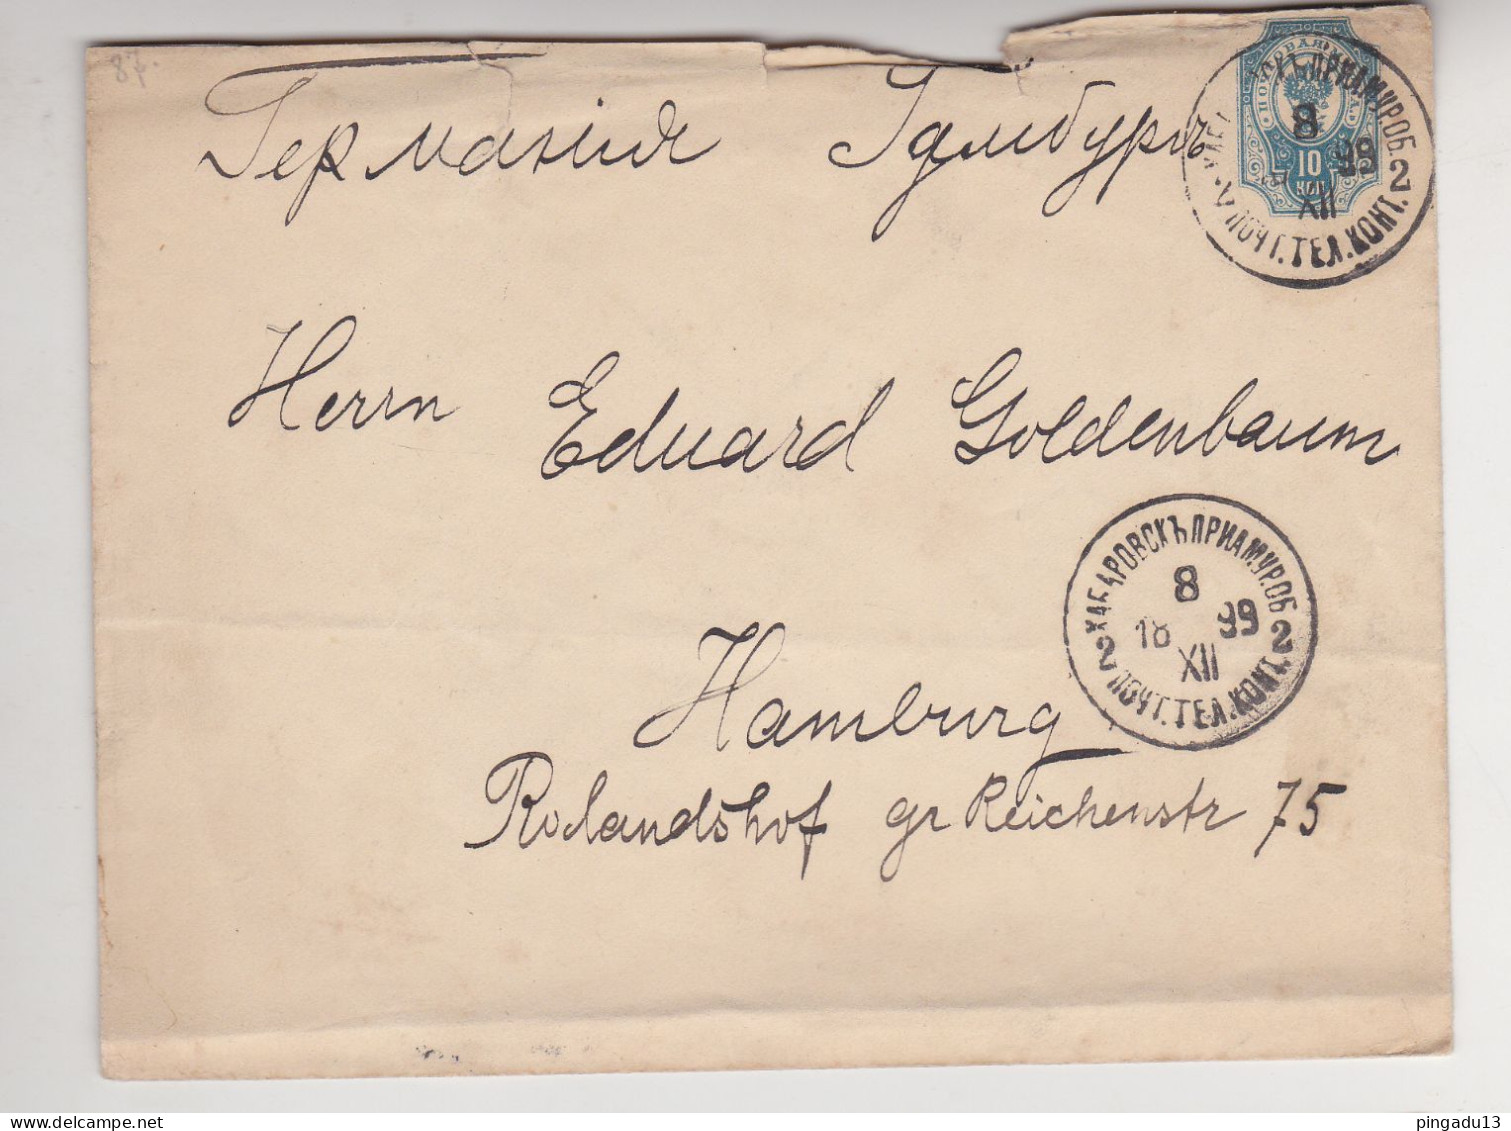 87.
Германія Гамбургъ
ПРИАМУР.ОБ.
8
99
XII
2 ПОЧТ.ТЕЛ.КОНТ. 2
10
КОП
Herrn Eduard Goldenbaum
ХАБАРОВСКЪ ПРИАМУР.ОБ.
8
18 99
XII
2 ПОЧТ.ТЕЛ.КОНТ. 2
Hamburg
Rolandshof gr Reichenstr 75
pingadu13